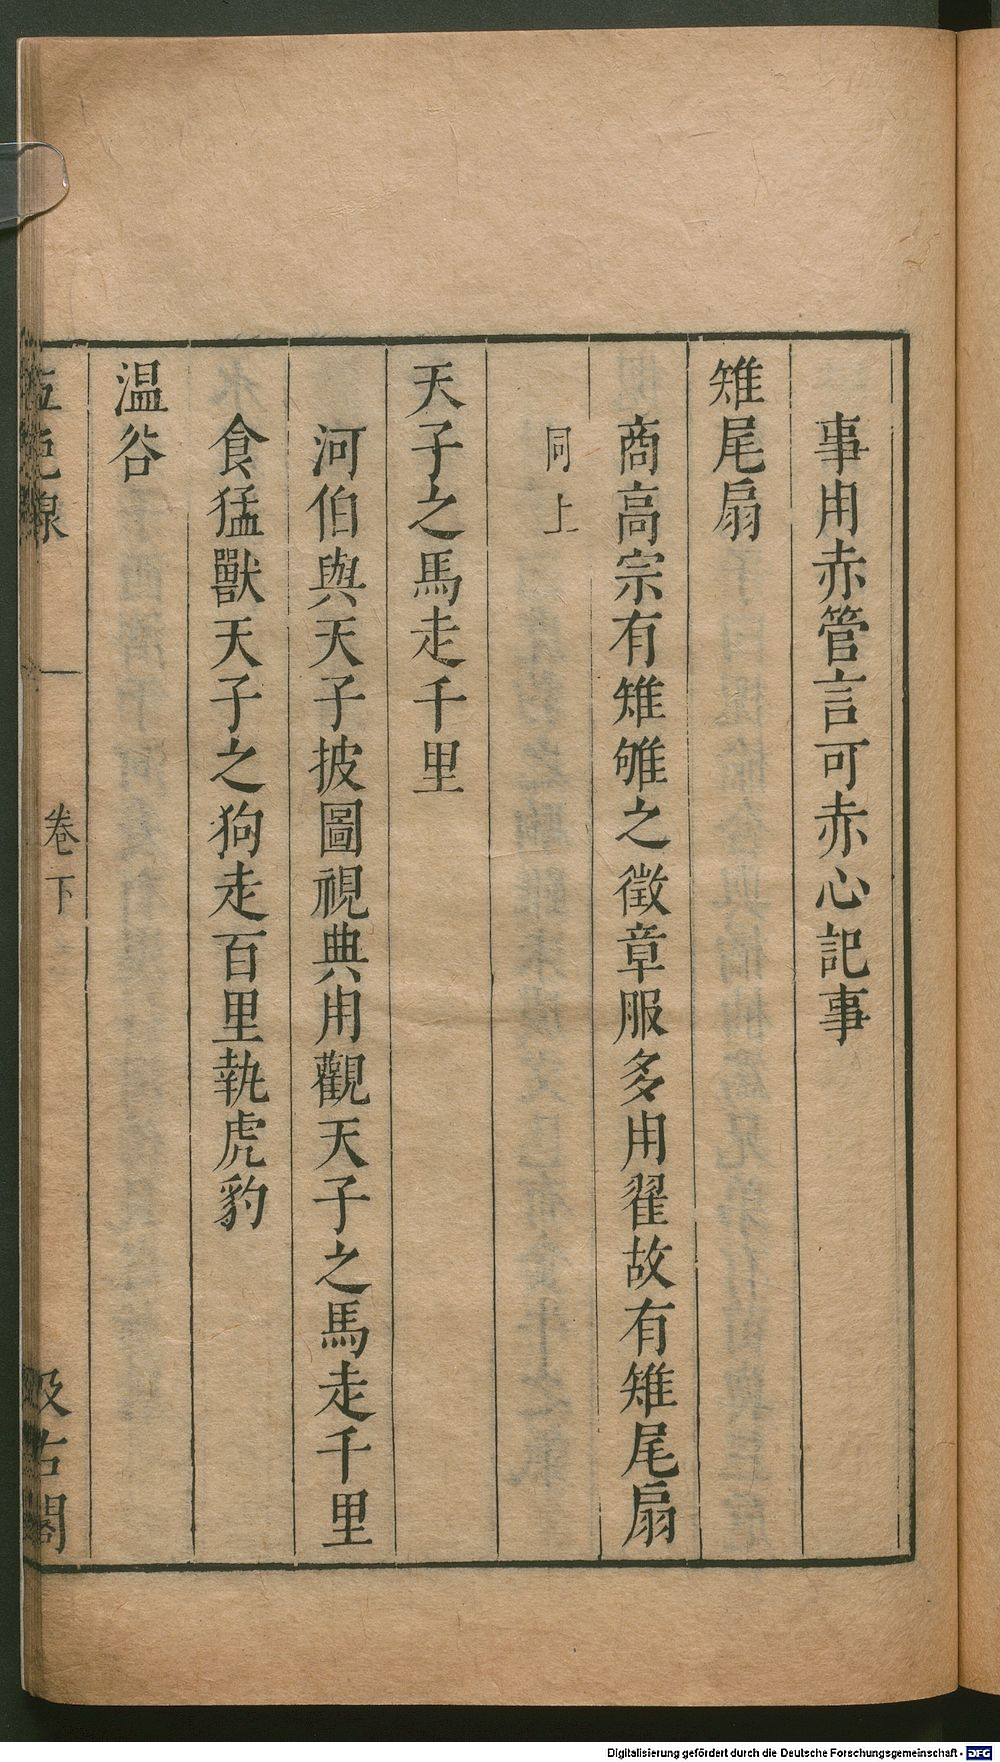 事用赤管言可赤心記事
雉尾扇
商高宗有雉雊之徵章服多用翟故有雉尾扇
同上
天子之馬走千里
河伯與天子披圖視典用觀天子之馬走千里
食猛獸天子之狗走百里執虎豹
温谷
五色線
卷下
汲古閣
Digitalisierung gefördert durch die Deutsche Forschungsgemeinschaft - DFG